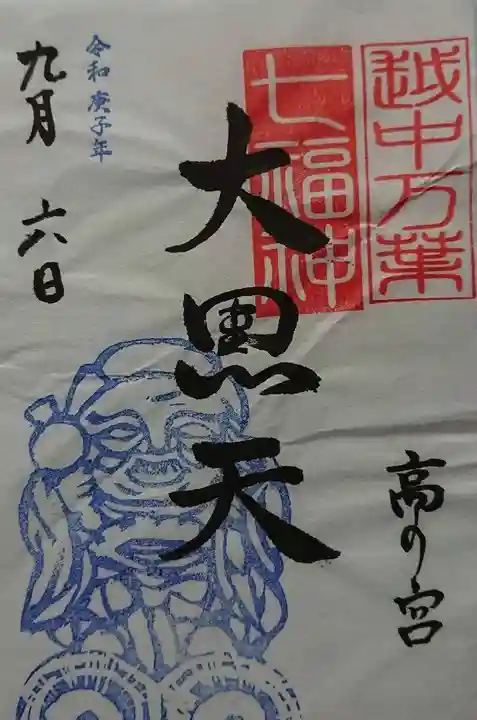 越中万葉
七福神
大黒天
高の宮
令和 庚子年
九月 六日